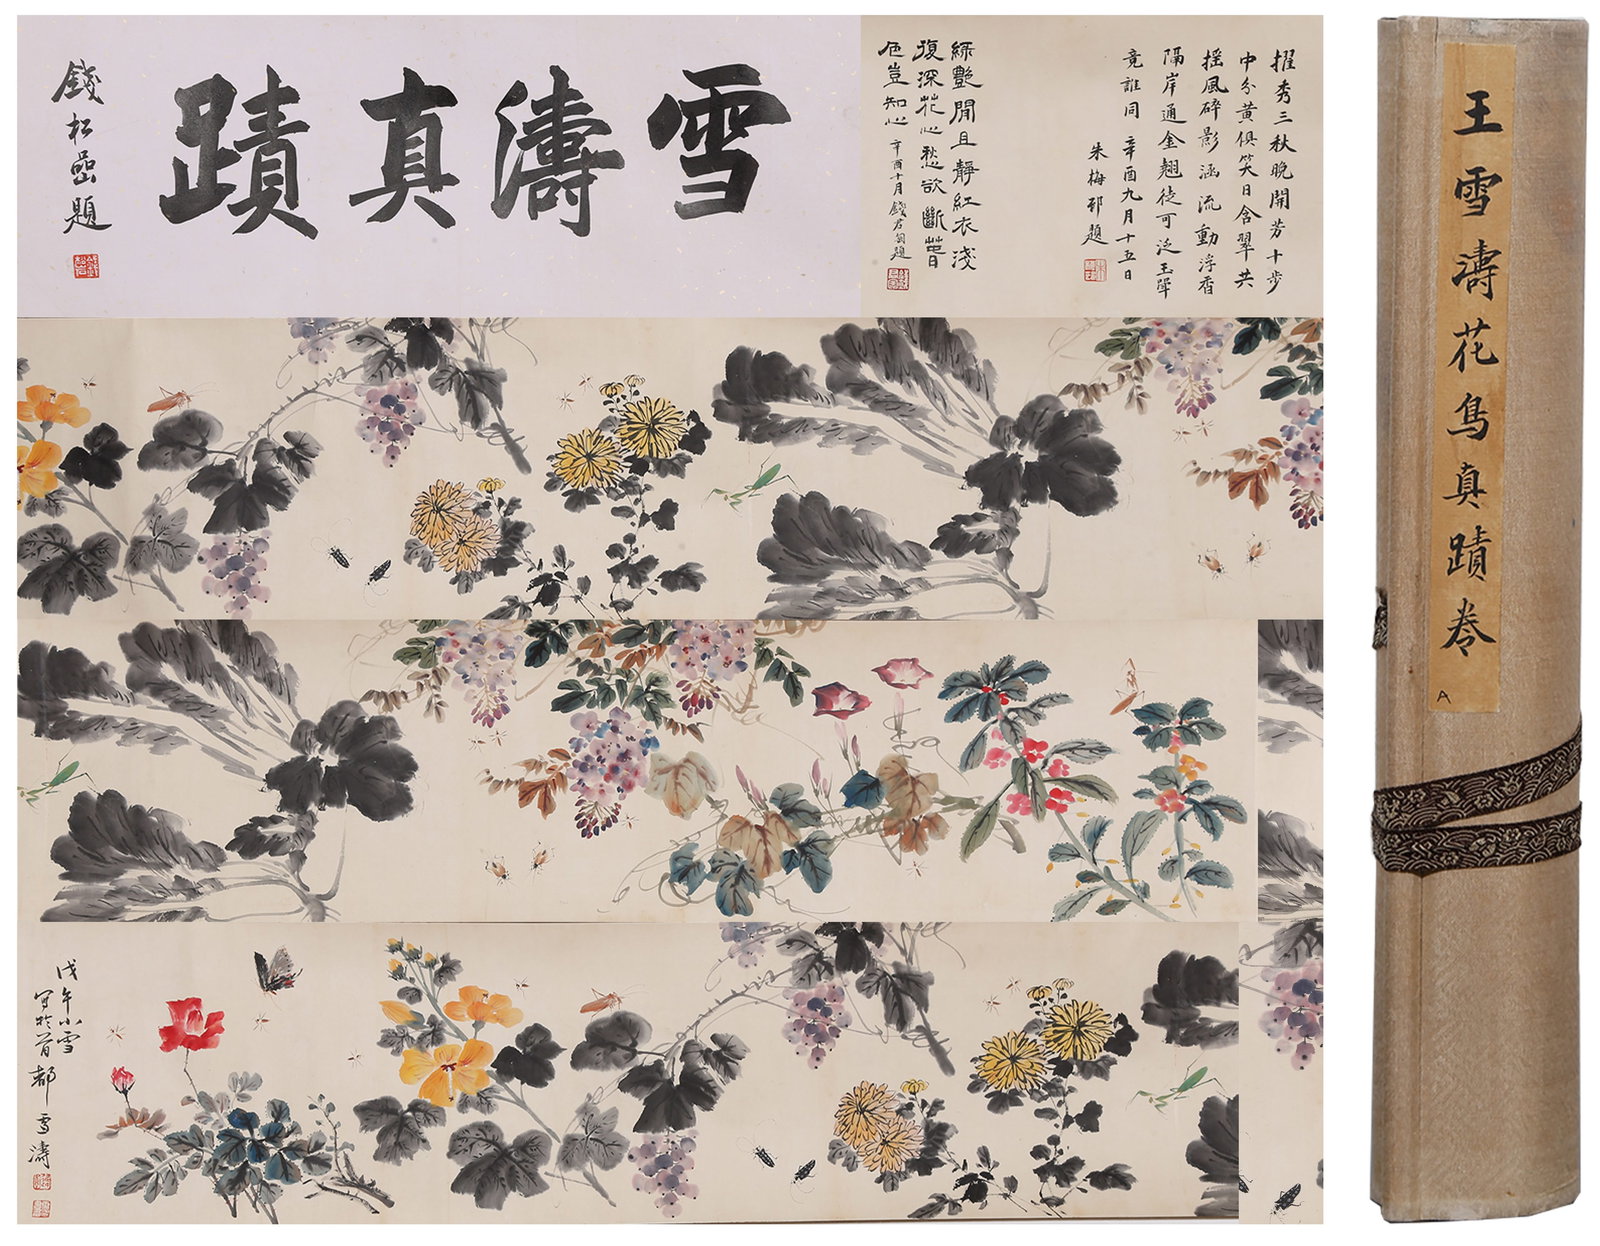 雪濤真蹟
錢松嵒題
擢秀三秋晚開芳十步
中分黃俱笑日含翠共
搖風碎影涵流動浮香
隔岸通金翹徒可泛玉斝
竟誰同 辛酉九月十五日
朱梅邨題
綠艷閒且靜紅衣淺
復深花心愁欲斷春
色豈知心 辛酉十月錢君匋題
戊午小雪
寫於首都 雪濤
王雪濤花鳥真蹟卷
A